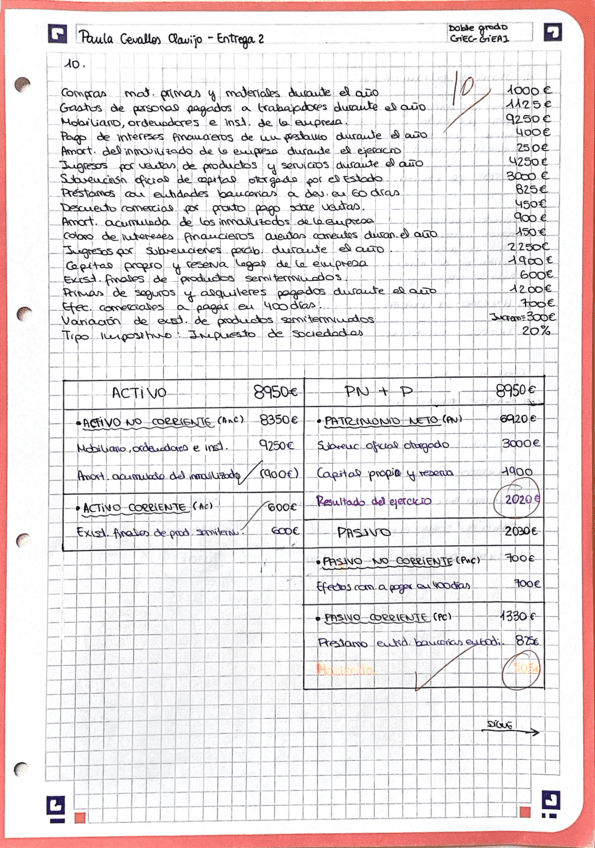 Paula Cevallos Clavijo - Entrega 2
Doble grado
GIEC GIEAI
10.
10
Compras mat. primas y materiales durante el año 1000 €
Gastos de personas pagados a trabajadores durante el año 1125 €
Mobiliario, ordenadores e inst. de la empresa. 9250 €
Pago de intereses financieros de un préstamo durante el año 400 €
Amort. del inmovilizado de la empresa durante el ejercicio 250 €
Ingresos por ventas de productos y servicios durante el año 4250 €
Subvención oficial de capital otorgado por el Estado 3000 €
Préstamos con entidades bancarias a dev. en 60 días 825 €
Descuento comercial por pronto pago sobre ventas. 450 €
Amort. acumulada de los inmovilizados de la empresa 900 €
Cobro de intereses financieros cuentas corrientes duran. el año 150 €
Ingresos por subvenciones percib. durante el año. 2250 €
Capital propio y reserva legal de la empresa 1900 €
Exist. finales de productos semiterminados. 600 €
Primas de seguros y alquileres pagados durante el año 1200 €
Efec. comerciales a pagar en 400 días. 700 €
Variación de exist. de productos semiterminados 300 €
Tipo Impositivo: Impuesto de Sociedades 20%
ACTIVO 8950 € PN + P 8950 €
• ACTIVO NO CORRIENTE (AnC) 8350 € • PATRIMONIO NETO (PN) 6920 €
Mobiliario, ordenadores e inst. 9250 € Subvenc. oficial otorgado 3000 €
Amort. acumulado del inmovilizado (900 €) Capital propio y reserva 1900
• ACTIVO CORRIENTE (AC) 600 € Resultado del ejercicio 2020 €
Exist. finales de prod. semiterm. 600 € PASIVO 2030 €
• PASIVO NO CORRIENTE (PnC) 700 €
Efectos com. a pagar en 400 días 700 €
• PASIVO CORRIENTE (PC) 1330 €
Préstamo entid. bancarias 825 €
SIGUE